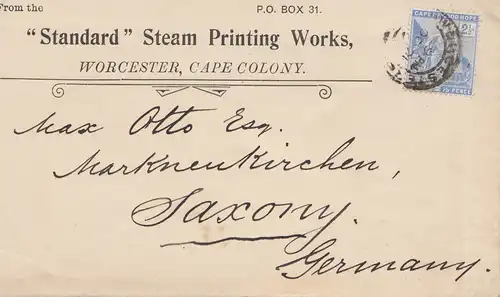 From the
P.O. BOX 31.
"Standard" Steam Printing Works,
WORCESTER, CAPE COLONY.
CAPE OF GOOD HOPE
2½
Max Otto Esq.
Markneukirchen,
Saxony.
Germany.